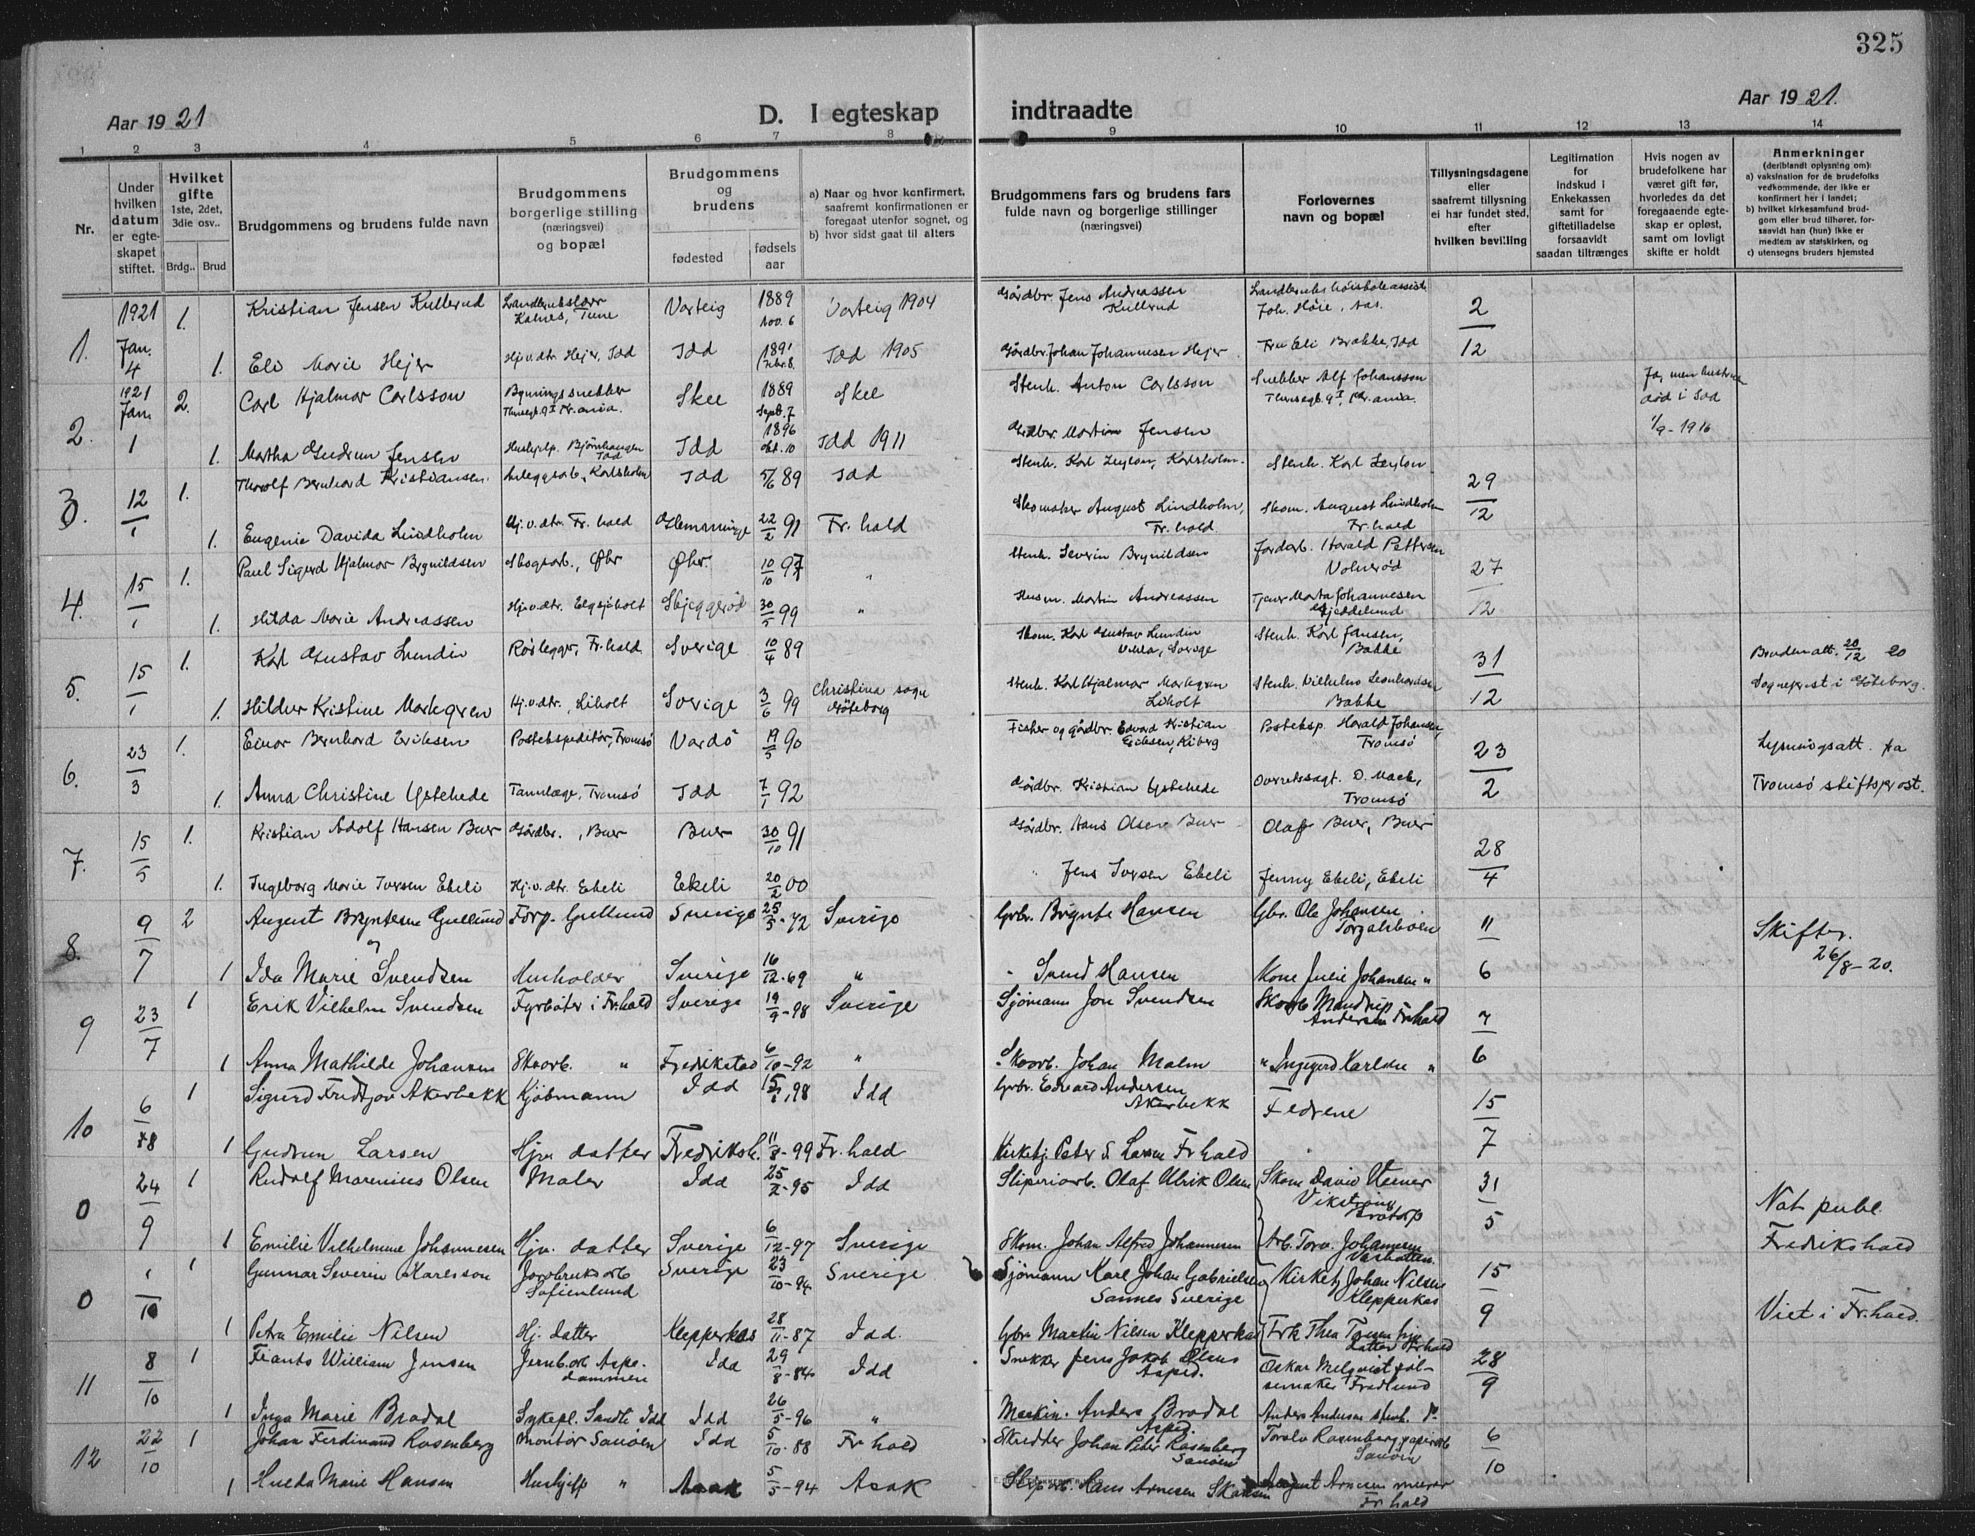 325
Aar 1921
D. I egteskap indtraadte
Aar 1921.
1 2 3 4 5 6 7 8 9 10 11 12 13 14
Nr.
Under hvilken datum er egteskapet stiftet.
Hvilket gifte 1ste, 2det, 3die osv..
Brdg.. Brud
Brudgommens og brudens fulde navn
Brudgommens borgerlige stilling (næringsvei) og bopæl
Brudgommens og brudens
fødested
fødselsaar
a) Naar og hvor konfirmert, saafremt konfirmationen er foregaat utenfor sognet, og
b) hvor sidst gaat til alters
Brudgommens fars og brudens fars fulde navn og borgerlige stillinger (næringsvei)
Forlovernes navn og bopæl
Tillysningsdagene eller saafremt tillysning ei har fundet sted, efter hvilken bevilling
Legitimation for indskud i Enkekassen samt for giftetilladelse forsaavidt saadan tiltrænges
Hvis nogen av brudefolkene har været gift før, hvorledes da det foregaaende egteskap er opløst, samt om lovligt skifte er holdt
Anmerkninger (deriblandt oplysning om):
a) vaksination for de brudefolks vedkommende, der ikke er konfirmert her i landet;
b) hvilket kirkesamfund brudgom eller brud tilhører, forsaavidt han (hun) ikke er medlem av statskirken, og
c) utensogns bruders hjemsted
1. 1921 Jan. 4 1. Kristian Jensen Kullerud Landbrukslærer Kalnes, Tune Varteig 1889 Nov. 6 Varteig 1904 Gårdbr. Jens Andreassen Kullerud Landbrukshøiskoleassist. Joh. Høie, Aas. 2/12
1. Eli Marie Hejer Hj.v.dtr. Hejer, Idd Idd 1891 Febr. 8. Idd 1905 Gårdbr. Johan Johannesen Hejer Fru Eli Brække, Idd
2. 1921 Jan. 1 2. Carl Hjalmar Carlsson Bygningssnekker Skee 1889 Sept. 7 Skee Stenh. Anton Carlsson Snekker Alf Johansson Ja, men hustruen død i Idd 1/9-1916
1. Martha Gudrun Jensen Hushjelp. Bjørnhaugen Idd Idd 1896 Okt. 10 Idd 1911 Gårdbr. Martin Jensen
3. 12/1 1. Thoralf Bernhard Kristiansen. Anleggsarb., Karlsholm Idd 5/6 89 Idd Stenh. Karl Leylon, Karlsholm. Stenh. Karl Leylon 29/12
1. Eugenie Davida Lindholm Hj.v.dtr. Fr.hald Glemminge 22/2 91 Fr.hald Skomaker August Lindholm, Fr.hald. Skom. August Lindholm Fr.hald
4. 15/1 1. Paul Sigurd Hjalmar Brynildsen Skogsarb., Øbr Øbr. 10/10 97 " Stenh. Severin Brynildsen Jordarb. Harald Pettersen 27/12
1. Hilda Marie Andreassen Hj.v.dtr. Elgsjøholt Skjeggerød 30/5 99 " Husm. Martin Andreassen Tjener Marta Johannesen Gjeddelund
5. 15/1 1. Karl Gustav Lundin Rørlegger, Fr.hald Sverige 10/4 89 Skom. Karl Gustav Lundin Sverige Stenh. Karl Jansen, Bakke 31/12 Brudens att. 20/12 20
1. Hildur Kristine Markgren Hj.v.dtr., Liholt Sverige 3/6 99 Christina sogn Gøteborg Stenh. Karl Hjalmar Markgren Liholt Stenh. Vilhelm Leonhardsen Bakke Sogneprest i Gøteborg.
6. 23/3 1. Einar Bernhard Eriksen Postekspeditør, Tromsø Vardø 19/5 90 Fisker og gårdbr. Edvard Kristian Eriksen, Kiberg Posteksp. Harald Johansen, Tromsø 23/2 Lysningsatt. fra
1. Anna Christine Ystehede Tannlæge, Tromsø Idd 7/1 92 Gårdbr. Kristian Ystehede Overrettssagf. D. Mack, Tromsø Tromsø stiftsprost.
7. 15/5 1. Kristian Adolf Hansen Buer Gårdbr., Buer Buer 30/10 91 Gårdbr. Hans Olsen Buer Olaf Buer, Buer 28/4
1. Ingeborg Marie Iversen Ekeli Hj.v.dtr. Ekeli Ekeli 20/2 00 " Jens Iversen Ekeli Jenny Ekeli, Ekeli
8. 9/7 2 August Bryntesen Gullund Forp. Gullund Sverige 25/3-72 Sverige Grbr. Brynte Hansen Gbr. Ole Johansen Torgalsbøen 11/6 Skifter. 26/8-20.
1 Ida Marie Svendsen Husholder Sverige 16/12-69 " " Svend Hansen Kone Julie Johansen "
9 23/7 1 Erik Vilhelm Svendsen Fyrbøter i Fr.hald Sverige 19/9-98 Sverige Sjømann Jon Svendsen Skoarb. Mandrup Andersen Fr.hald 7/6
1 Anna Mathilde Johansen Skoarb. " Fredrikstad 6/10-92 " Skoarb. Johan Malm " Ingegerd Karlsen "
10 6/8 1 Sigurd Fredtjov Akerbekk Kjøbmann Idd 15/1 98 Idd Grbr. Edvard Andersen Akerbekk Fedrene 15/7
1 Gudrun Larsen Hjv. datter Fredriksh. 11/8-99 Fr.hald Kirketj. Peter S. Larsen Fr hald
0 24/9 1 Rudolf Marenius Olsen Maler Idd 25/2-95 Idd Sliperiarb. Olaf Ulrik Olsen Skom David Verner Vikstrøm 31/5 Not. publ.
1 Emilie Vilhelmine Johannesen Hjv. datter Sverige 6/12-97 Sverige Skom. Johan Alfred Johannesen Arb. Torv. Johannesen Fredrikshald
0 1/10 1 Gunnar Severin Karlsson Jordbruksarb Sofienlund Sverige 23/10-94 Sverige Sjømann Karl Johan Gabrielsen Sannes Sverige Kirketj Johan Nilsen Klepperkas 15/9 Viet i Fr.hald.
1 Petra Emilie Nilsen Hj. datter Klepperkas 28/11-87 Idd. Gbr. Martin Nilsen Klepperkas Frk Thea Torsen hjv. datter Fr.hald
11 8/10 1 Frants William Jensen Jernb.arb Aspedammen Idd 29/8-84 Idd Snekker Jens Jakob Olsen Asped. Oskar Melqvist pølsemaker Fredlund 28/9
1 Inga Marie Bradal Sykepl. Sandli Idd Idd 26/5-96 " Maskin. Anders Bradal Asped. Anders Andersen
12 22/10 1 Johan Ferdinand Rosenberg Montør Sanøen Idd 5/10-88 Fr.hald Skredder Johan Peter Rosenberg Sanøen Toralv Rosenberg papirarb Sanøen 6/10
1 Hulda Marie Hansen Hushjelp " Asak 5/5-94 Asak Slip.arb. Hans Arnesen Skansen August Arnesen murer Fr.hald